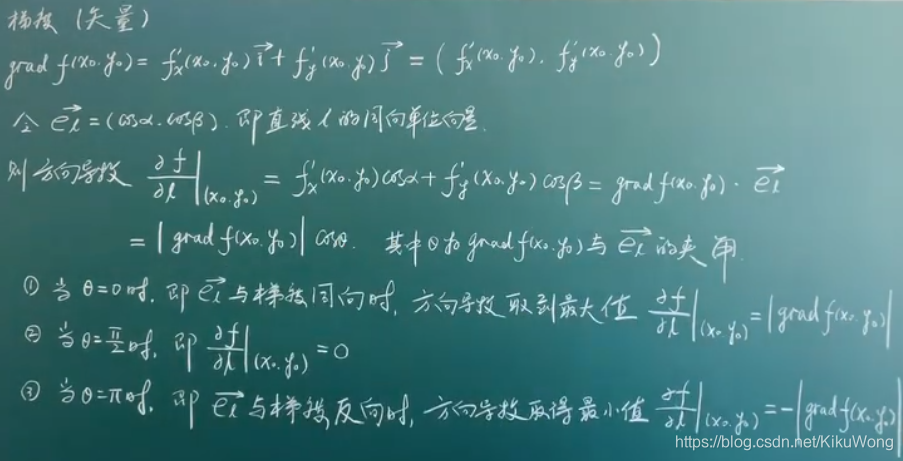 梯度(矢量)
grad f(x₀.y₀) = f'ₓ(x₀.y₀) i⃗ + f'ᵧ(x₀.y₀) j⃗ = ( f'ₓ(x₀.y₀). f'ᵧ(x₀.y₀) )
令 e⃗ₗ = (cosα.cosβ). 即直线 l 的同向单位向量.
则方向导数 ∂f/∂l|(x₀.y₀) = f'ₓ(x₀.y₀)cosα + f'ᵧ(x₀.y₀)cosβ = grad f(x₀.y₀) · e⃗ₗ
= |grad f(x₀.y₀)| cosθ. 其中θ为grad f(x₀.y₀)与 e⃗ₗ 的夹角.
① 当 θ=0时. 即 e⃗ₗ 与梯度同向时, 方向导数取到最大值 ∂f/∂l|(x₀.y₀) = |grad f(x₀.y₀)|
② 当θ=π/2时, 即 ∂f/∂l|(x₀.y₀) = 0
③ 当θ=π时, 即 e⃗ₗ 与梯度反向时, 方向导数取得最小值 ∂f/∂l|(x₀.y₀) = -|grad f(x₀.y₀)|
https://blog.csdn.net/KikuWong